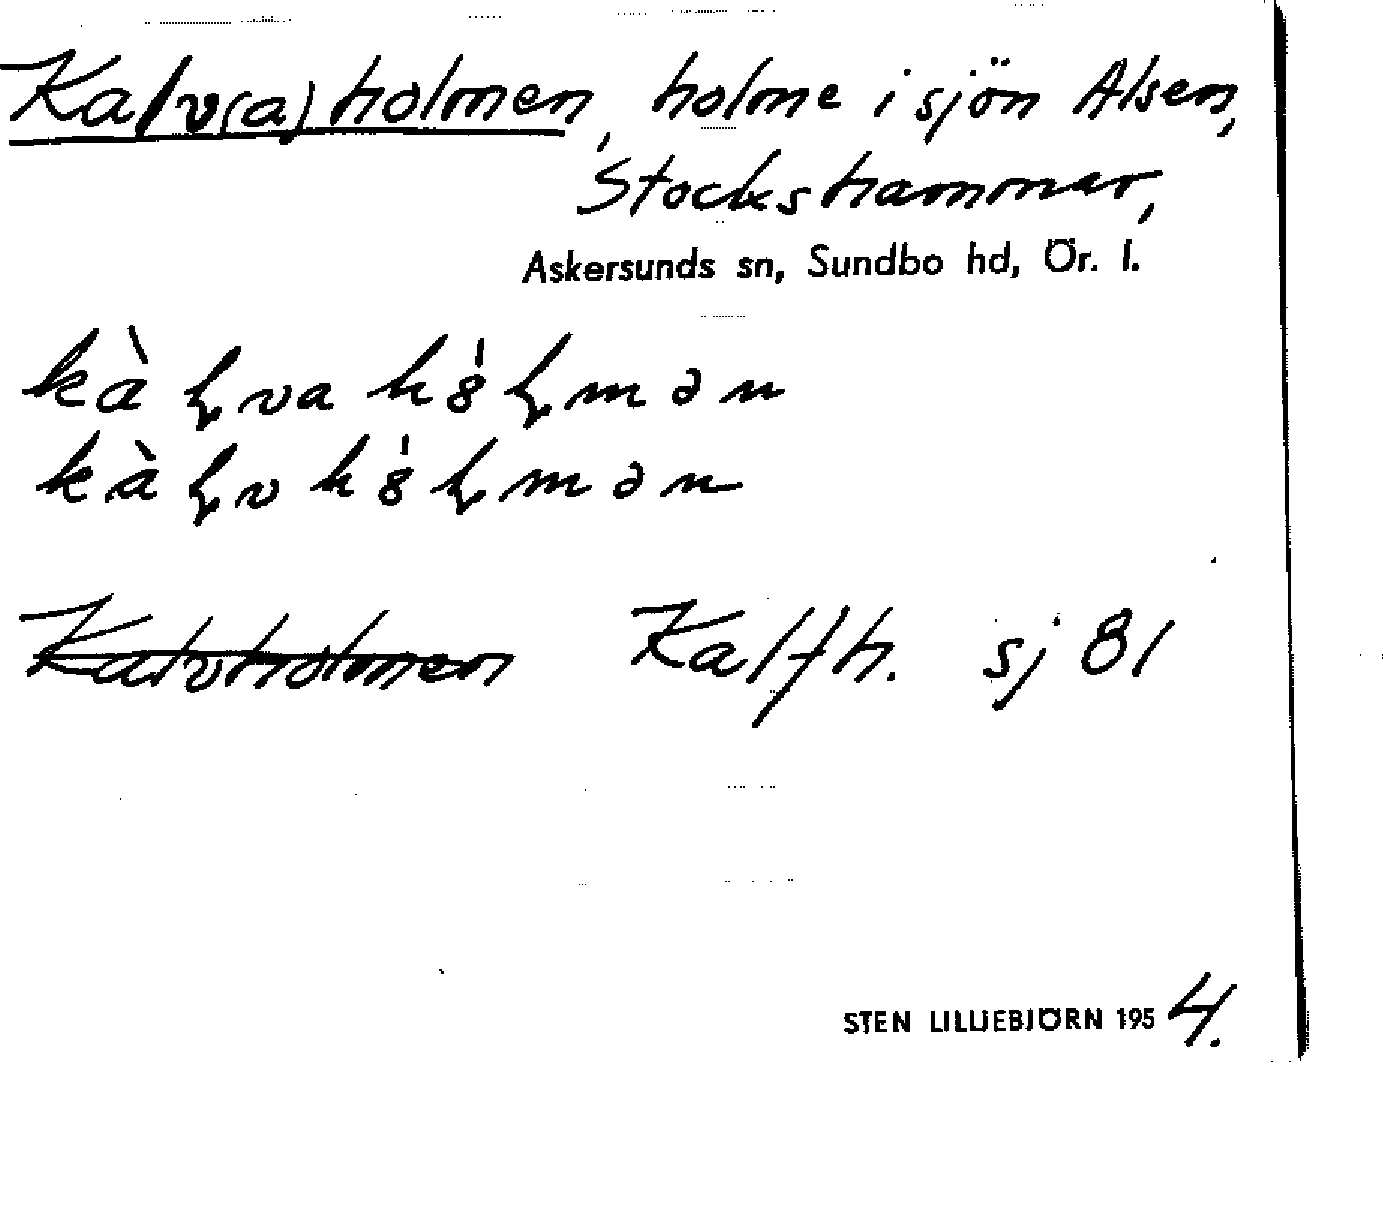 Kalv(a)holmen, holme i sjön Alsen,
Stockshammar,
Askersunds sn, Sundbo hd, Ör. l.
Kalvholmen Kalfh. sj 81
STEN LILLIEBJÖRN 1954.